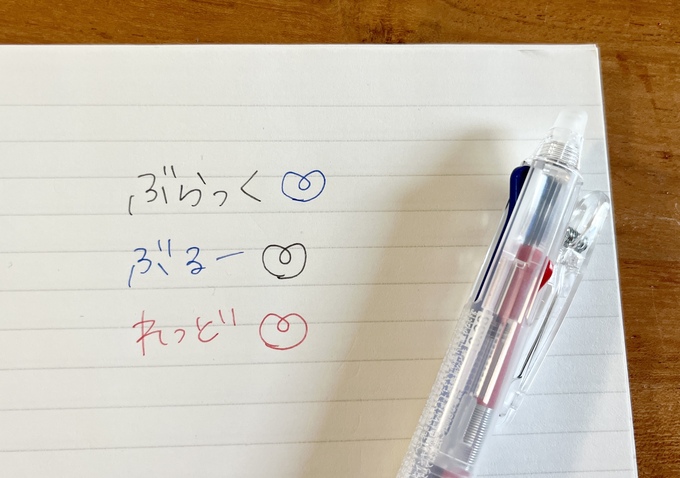 ぶらっく
ぶるー
れっど